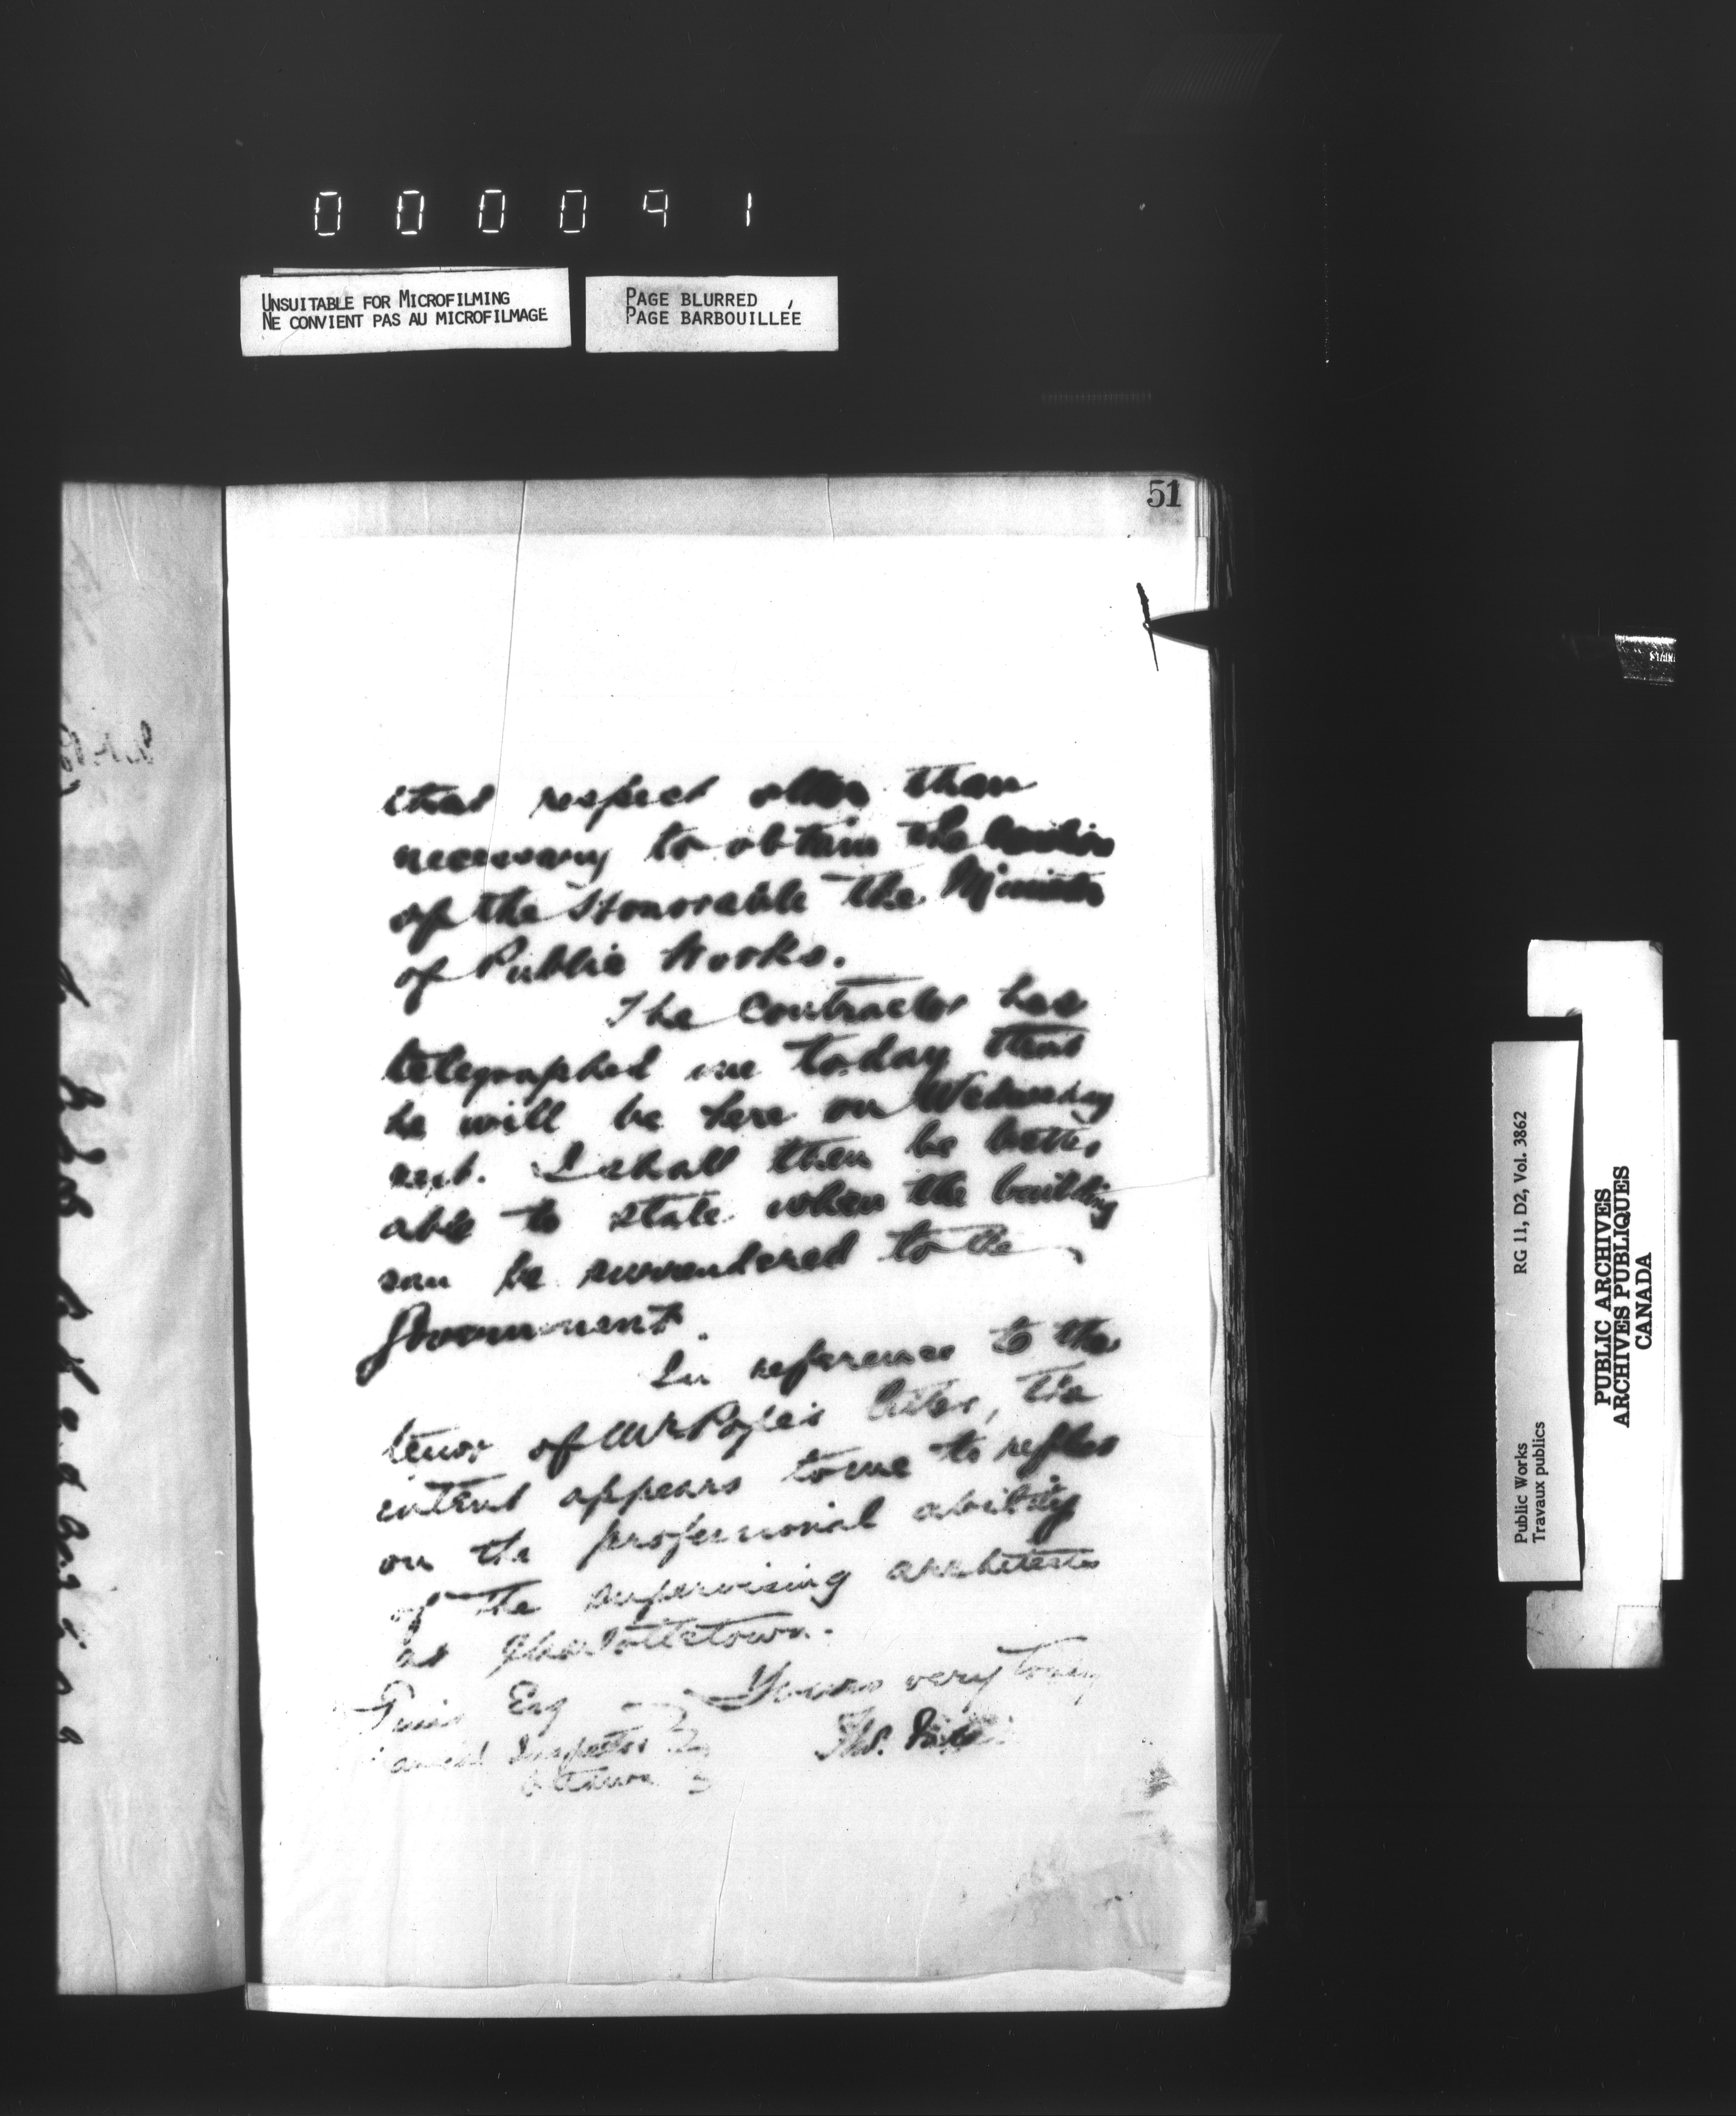 000091
UNSUITABLE FOR MICROFILMING
NE CONVIENT PAS AU MICROFILMAGE
PAGE BLURRED
PAGE BARBOUILLÉE
51
that respect other than
necessary to obtain the
of the Honorable the Minister
of Public Works.
The Contractor has
telegraphed me today that
he will be here on Wednesday
next. I shall then be better
able to state when the building
can be surrendered to the
Government.
In reference to the
tenor of Mr Pope's letter, the
intent appears to me to reflect
on the professional ability
of the supervising architects
at Charlottetown.
Yours very truly
Esq
Inspector
Ottawa
Ths.
Public Works
Travaux publics
RG 11, D2, Vol. 3862
PUBLIC ARCHIVES
ARCHIVES PUBLIQUES
CANADA